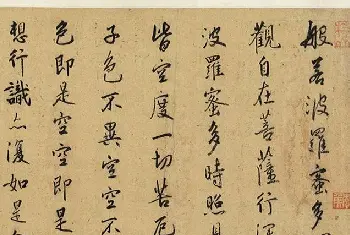 般若波羅蜜多
觀自在菩薩行深
波羅蜜多時照見
皆空度一切苦厄
子色不異空空不
色即是空空即是
想行識亦復如是